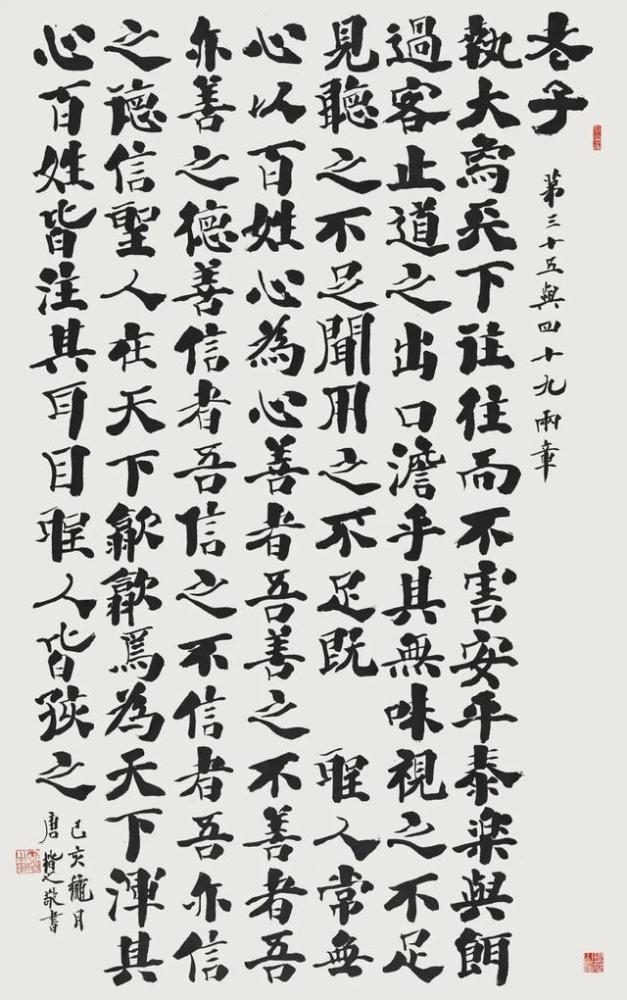 老子 第三十五與四十九兩章
執大象天下往往而不害安平泰樂與餌
過客止道之出口澹乎其無味視之不足
見聽之不足聞用之不足既 聖人常無
心以百姓心為心善者吾善之不善者吾
亦善之德善信者吾信之不信者吾亦信
之德信聖人在天下歙歙焉為天下渾其
心百姓皆注其耳目聖人皆孩之
己亥龝月
唐楷之敬書